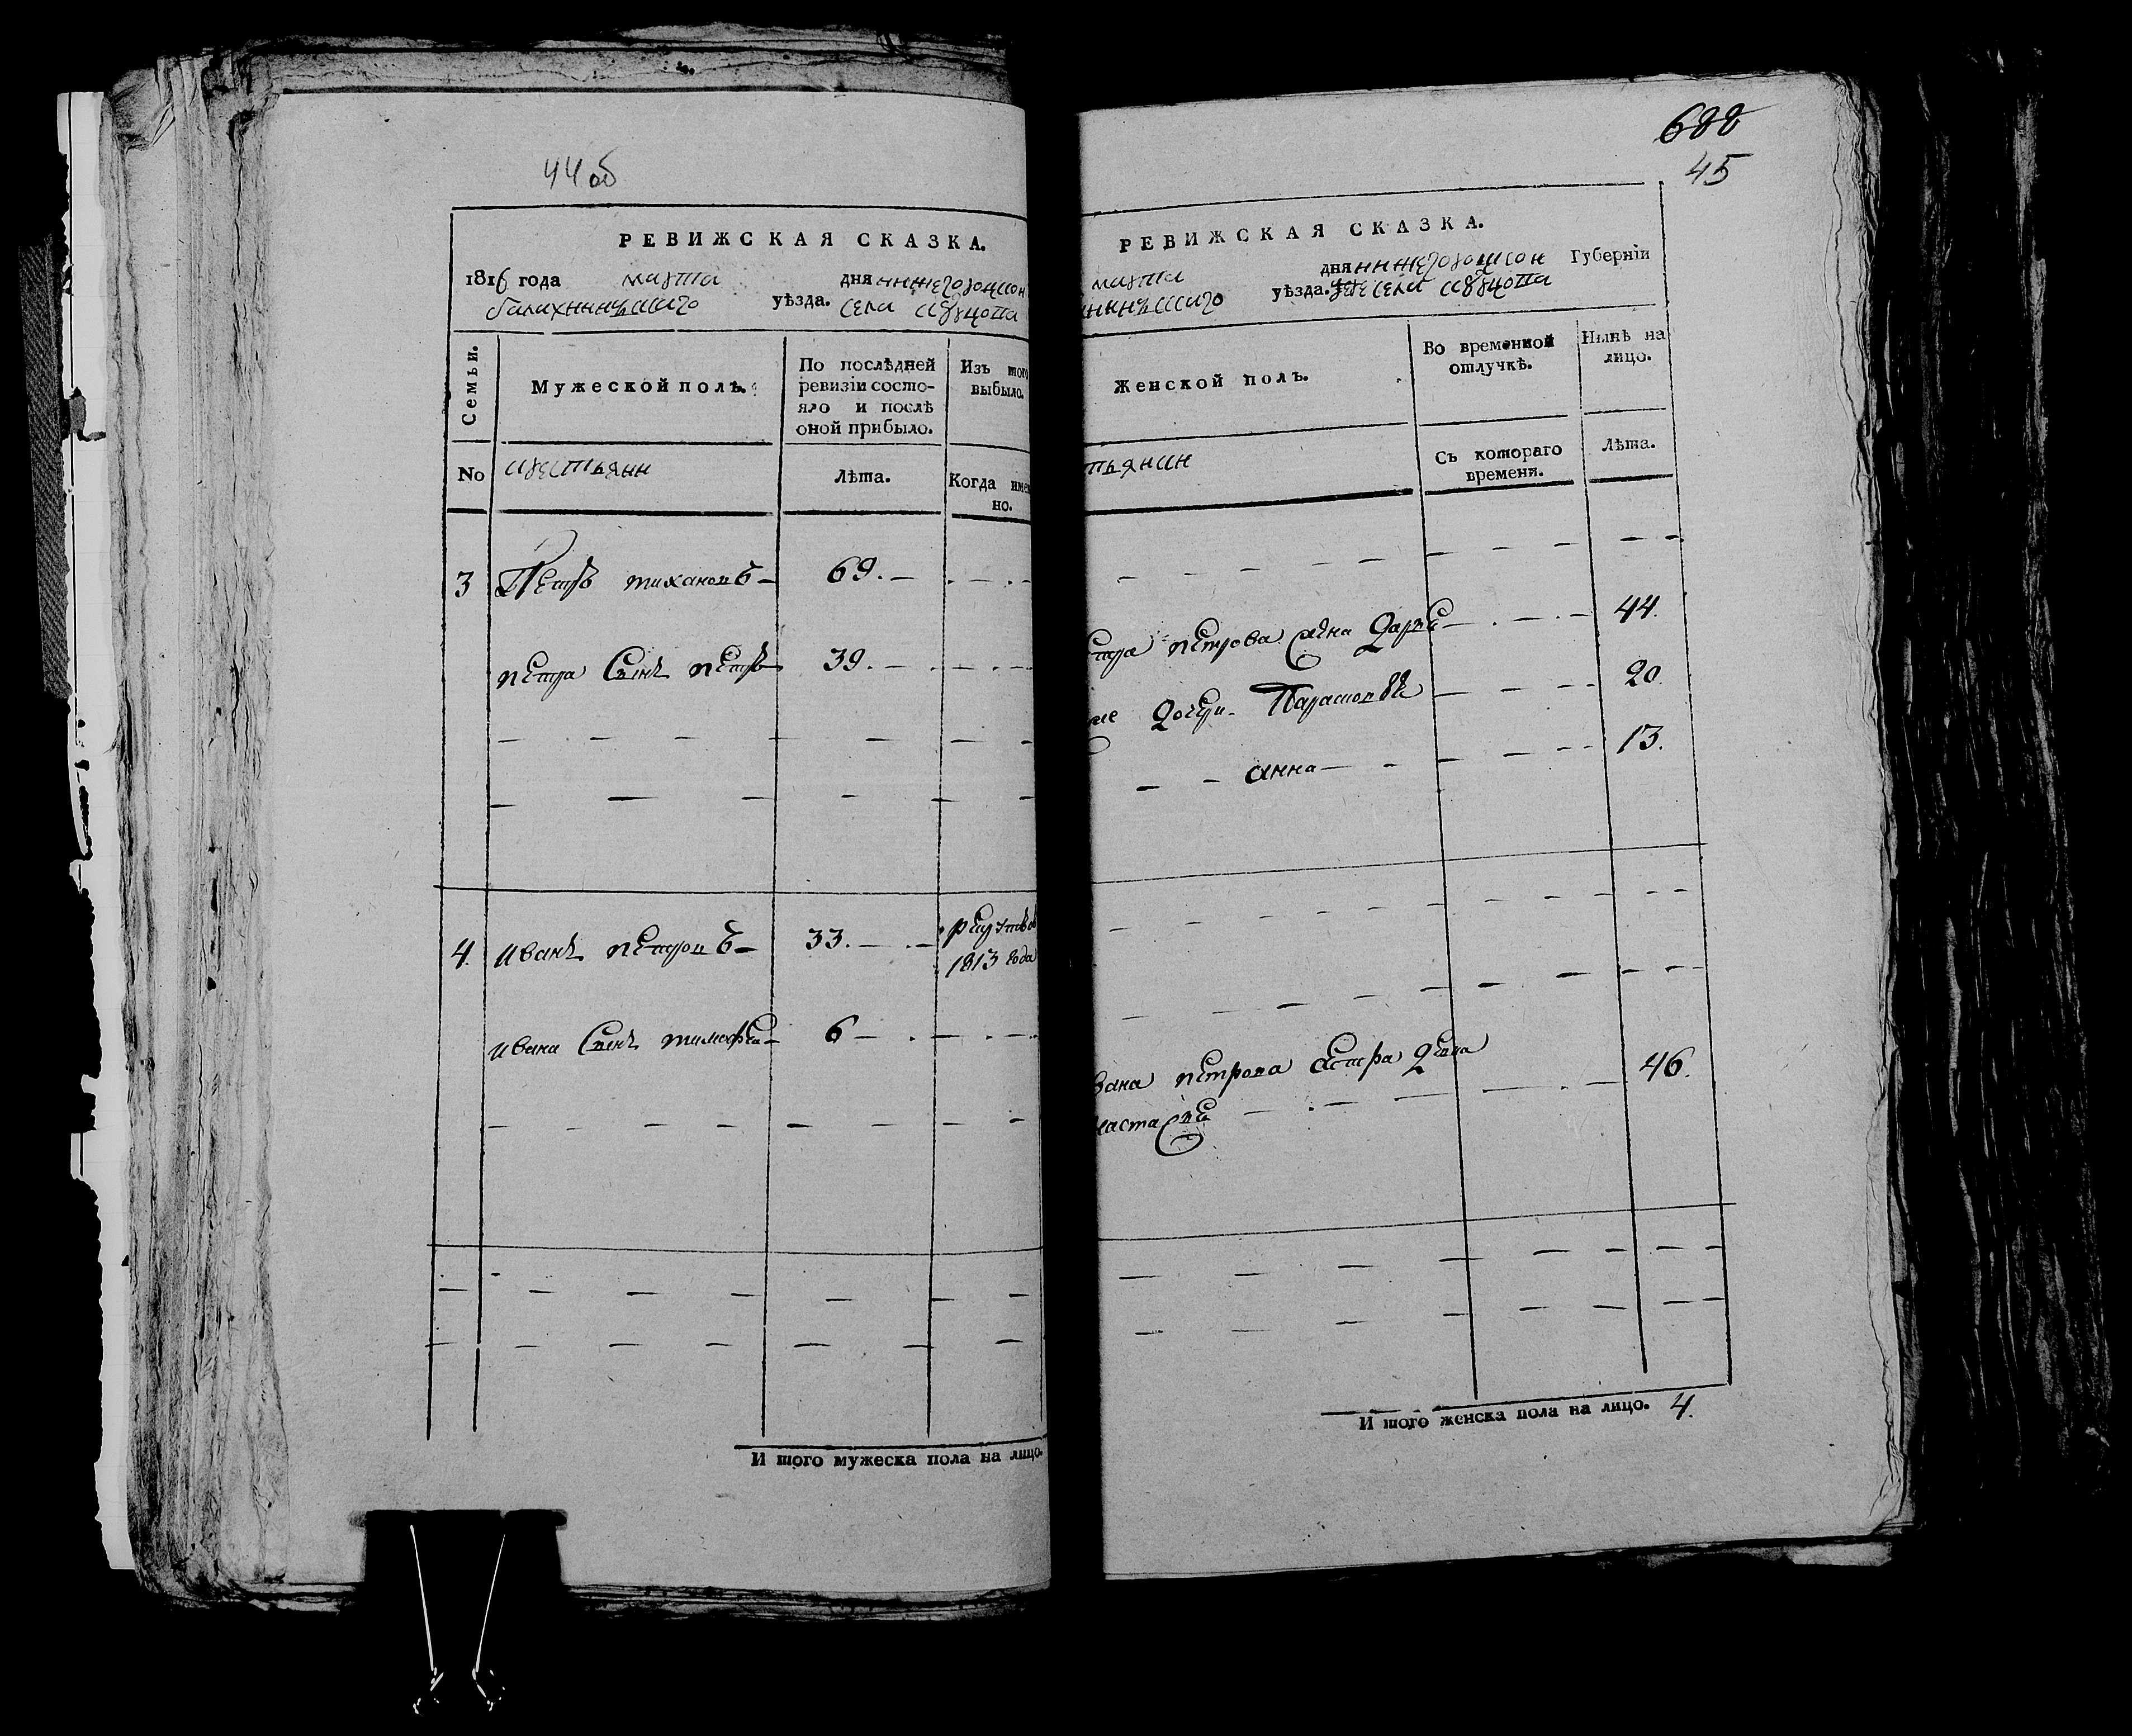 44 об
РЕВИЖСКАЯ СКАЗКА.
1816 года марта дня нижегородской
балахнинскаго уѣзда. села
Семьи.
Мужеской полъ.
По послѣдней
ревизіи состо-
яло и послѣ
оной прибыло.
Изъ того
выбыло.
No
крестьянн
Лѣта.
Когда име
но.
3 Петръ тихановъ 69.
петра Сынъ петръ 39.
4. иванъ петровъ 33.
1813 года
ивана Сынъ тимофеи 6
И того мужеска пола на лицо.
688
45
РЕВИЖСКАЯ СКАЗКА.
марта дня нижегородской Губерніи
нинскаго уѣзда. села
Женской полъ.
Во временной
отлучкѣ.
Нынѣ на
лицо.
тьянин
Съ котораго
времени.
Лѣта.
етра петрова жена Дарья 44.
дочери Парасковья 20.
анна 13.
вана петрова сестра девка 46.
настасья
И того женска пола на лицо. 4.